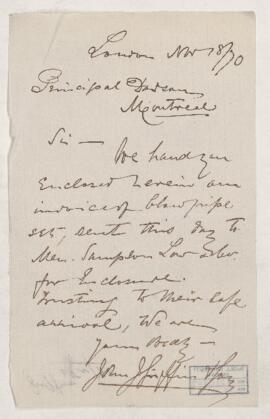 London Nov 18/70
Principal Dawson
Montreal
Sir —
We hand you
Enclosed herein our
invoice of blowpipe
set, sent this day to
Mess. Sampson Low &
for Enclosure.
Trusting to their safe
arrival, We are
Yours
John J Griffin &